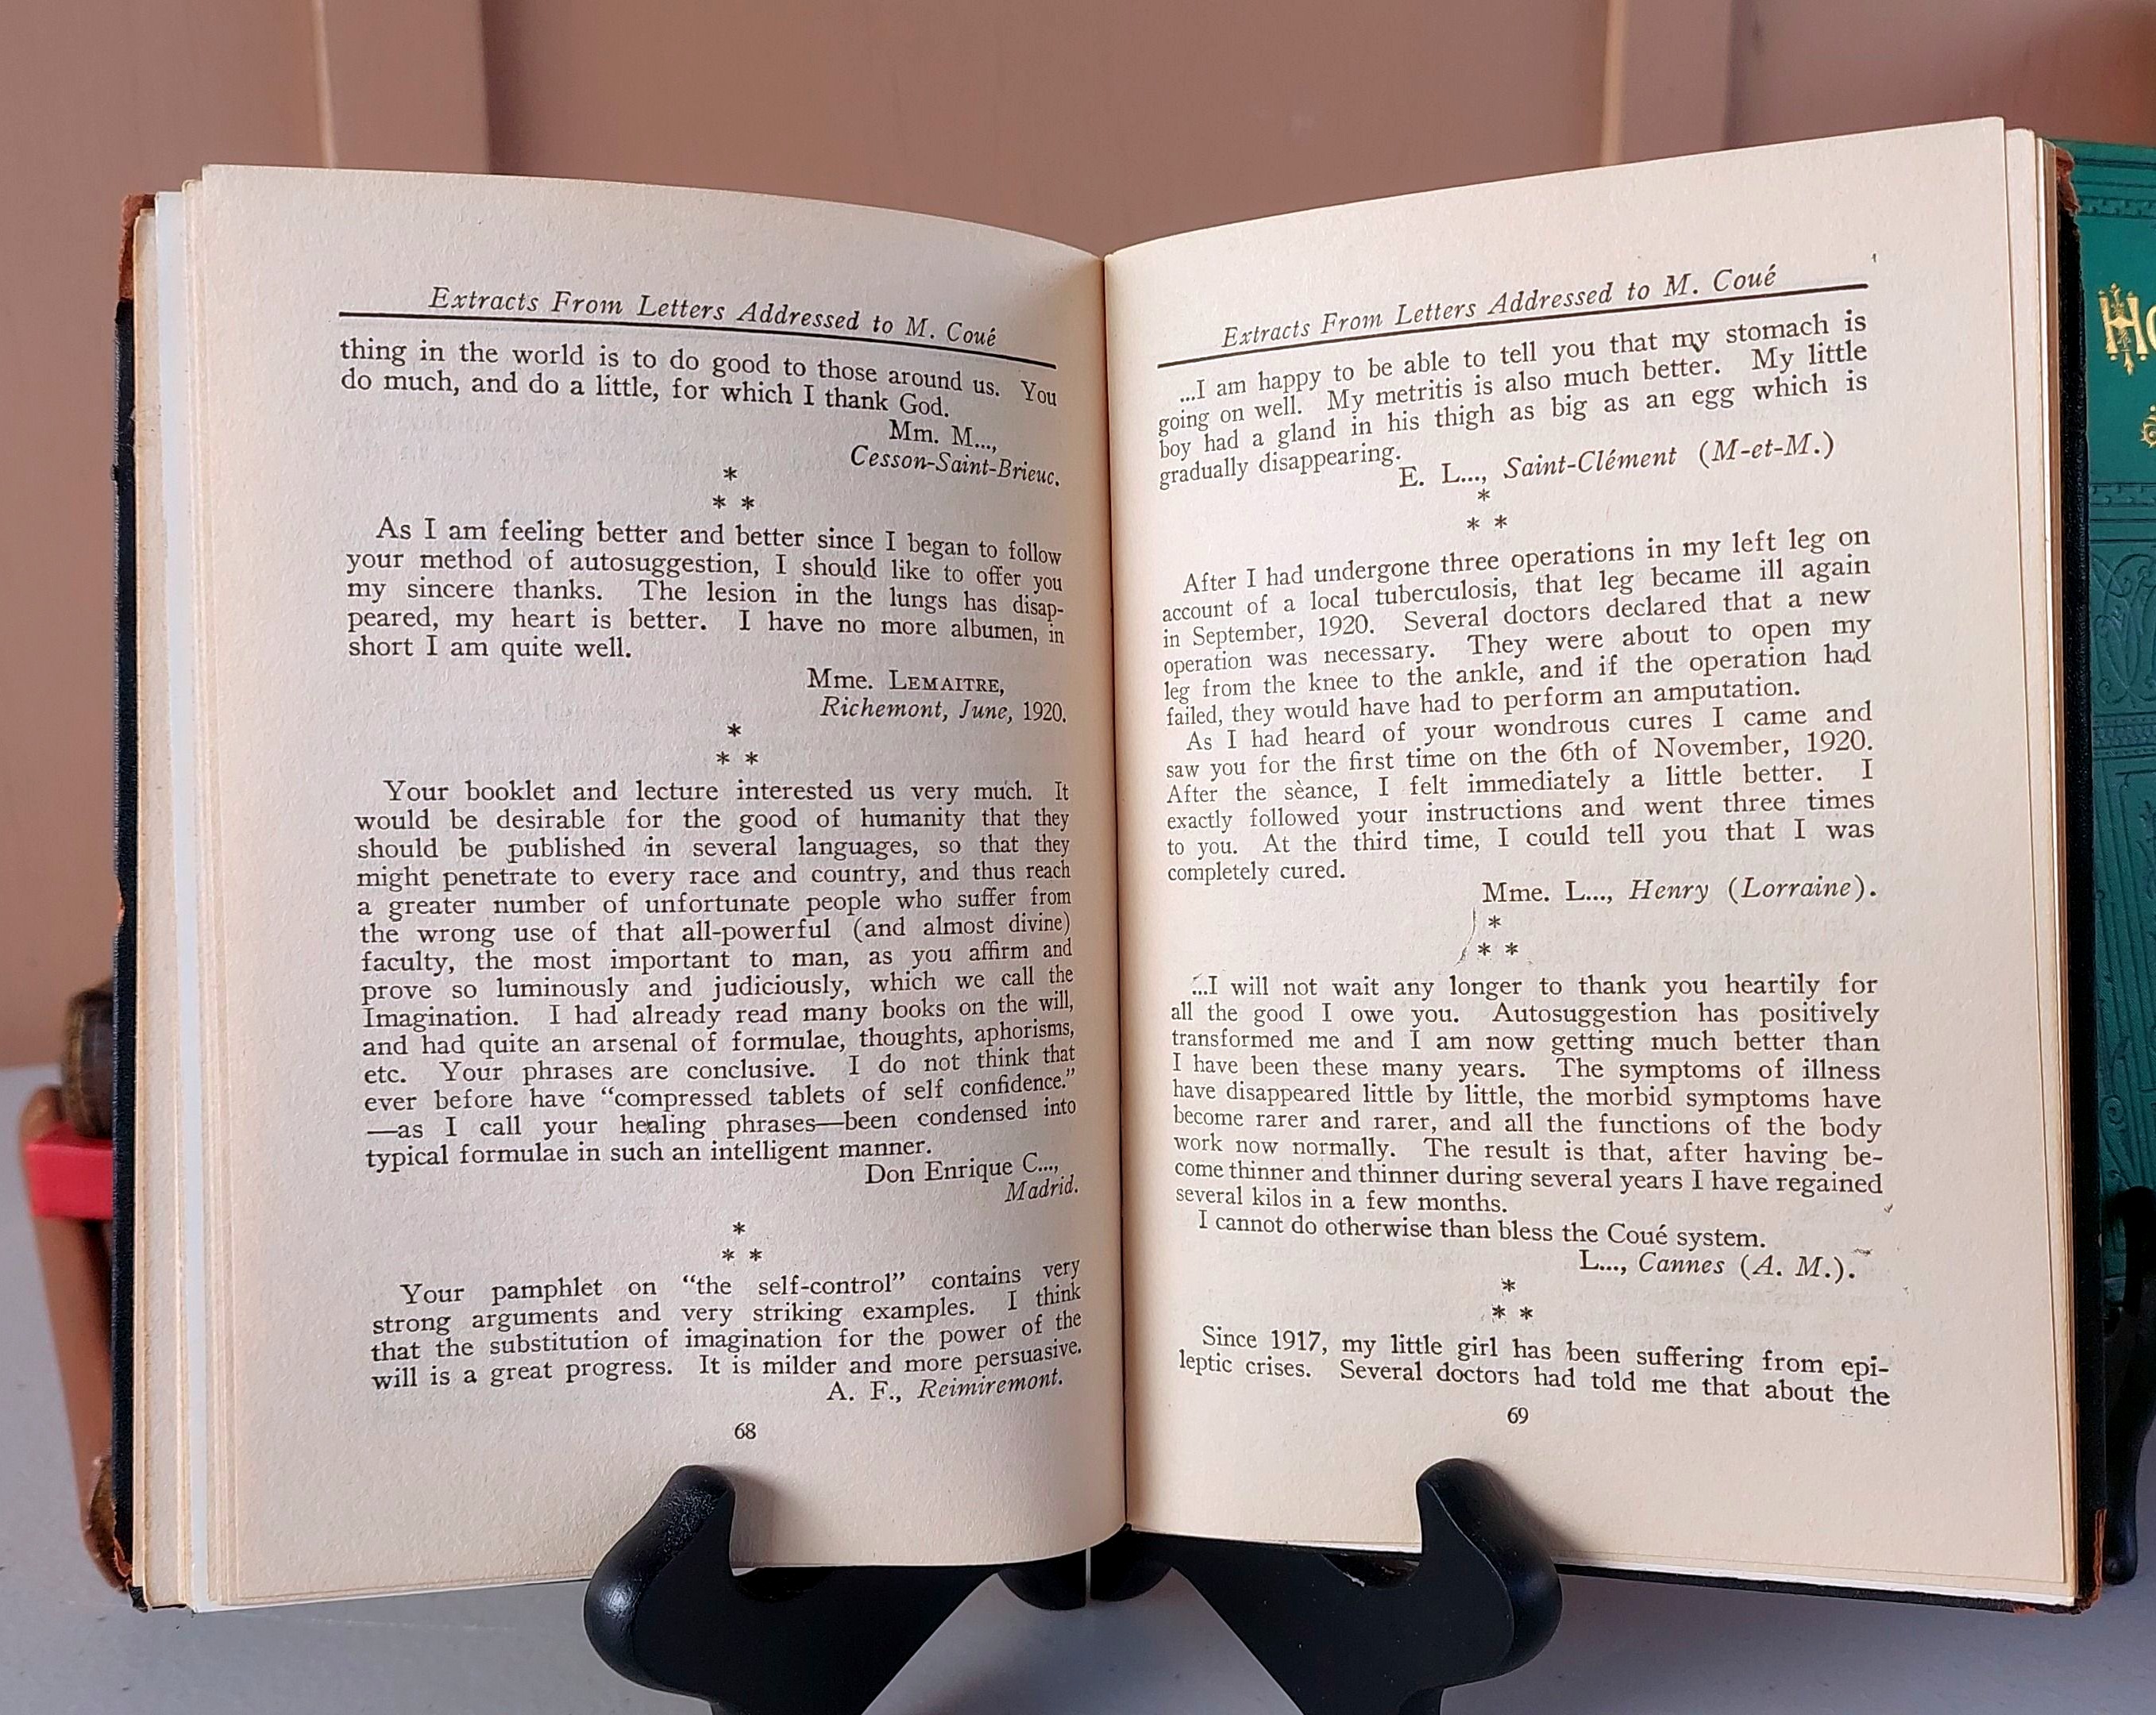 Extracts From Letters Addressed to M. Coué
thing in the world is to do good to those around us. You
do much, and do a little, for which I thank God.
Mm. M...,
Cesson-Saint-Brieuc.
*
* *
As I am feeling better and better since I began to follow
your method of autosuggestion, I should like to offer you
my sincere thanks. The lesion in the lungs has disap-
peared, my heart is better. I have no more albumen, in
short I am quite well.
Mme. LEMAITRE,
Richemont, June, 1920.
*
* *
Your booklet and lecture interested us very much. It
would be desirable for the good of humanity that they
should be published in several languages, so that they
might penetrate to every race and country, and thus reach
a greater number of unfortunate people who suffer from
the wrong use of that all-powerful (and almost divine)
faculty, the most important to man, as you affirm and
prove so luminously and judiciously, which we call the
Imagination. I had already read many books on the will,
and had quite an arsenal of formulae, thoughts, aphorisms,
etc. Your phrases are conclusive. I do not think that
ever before have “compressed tablets of self confidence.”
—as I call your healing phrases—been condensed into
typical formulae in such an intelligent manner.
Don Enrique C...,
Madrid.
*
* *
Your pamphlet on “the self-control” contains very
strong arguments and very striking examples. I think
that the substitution of imagination for the power of the
will is a great progress. It is milder and more persuasive.
A. F., Reimiremont.
68
Extracts From Letters Addressed to M. Coué
...I am happy to be able to tell you that my stomach is
going on well. My metritis is also much better. My little
boy had a gland in his thigh as big as an egg which is
gradually disappearing.
E. L..., Saint-Clément (M-et-M.)
*
* *
After I had undergone three operations in my left leg on
account of a local tuberculosis, that leg became ill again
in September, 1920. Several doctors declared that a new
operation was necessary. They were about to open my
leg from the knee to the ankle, and if the operation had
failed, they would have had to perform an amputation.
As I had heard of your wondrous cures I came and
saw you for the first time on the 6th of November, 1920.
After the sèance, I felt immediately a little better. I
exactly followed your instructions and went three times
to you. At the third time, I could tell you that I was
completely cured.
Mme. L..., Henry (Lorraine).
*
* *
...I will not wait any longer to thank you heartily for
all the good I owe you. Autosuggestion has positively
transformed me and I am now getting much better than
I have been these many years. The symptoms of illness
have disappeared little by little, the morbid symptoms have
become rarer and rarer, and all the functions of the body
work now normally. The result is that, after having be-
come thinner and thinner during several years I have regained
several kilos in a few months.
I cannot do otherwise than bless the Coué system.
L..., Cannes (A. M.).
*
* *
Since 1917, my little girl has been suffering from epi-
leptic crises. Several doctors had told me that about the
69